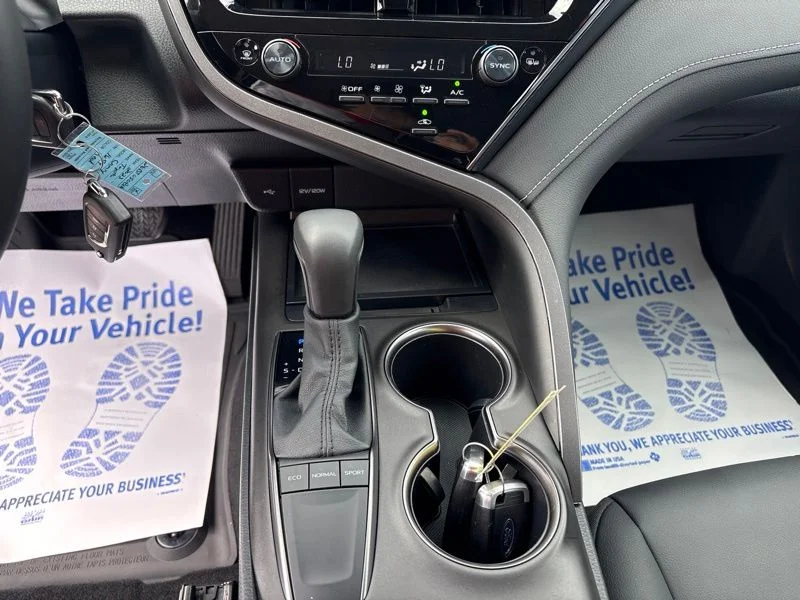 AUTO
LO
LO
SYNC
FRONT
OFF
A/C
12V/120W
We Take Pride
n Your Vehicle!
APPRECIATE YOUR BUSINESS
P
R
N
S - D
+
ECO
NORMAL
SPORT
ake Pride
our Vehicle!
ANK YOU, WE APPRECIATE YOUR BUSINESS
MADE IN USA